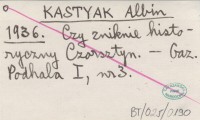 KASTYAK Albin
1936. Czy zniknie histo-
ryczny Czorsztyn. — Gaz.
Podhala I, nr 3.
BT/025/0190